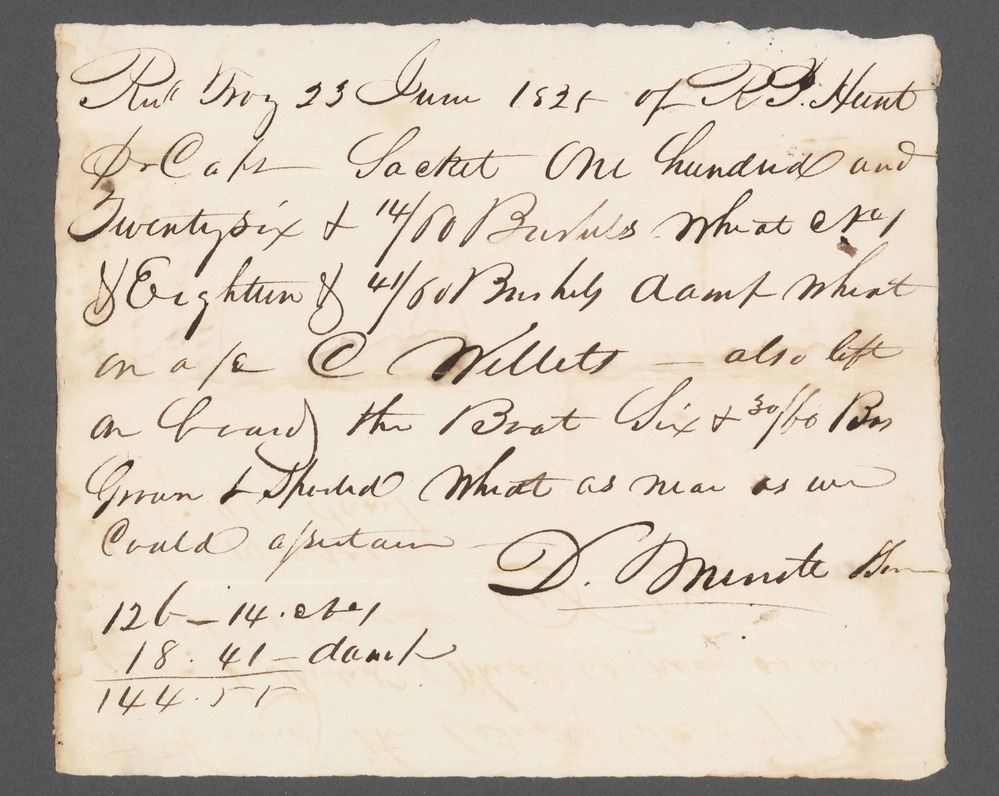 Recd Troy 23 June 1825 of R. T. Hunt
Pr Capt Sacket One hundred and
Twentysix & 14/60 Bushels Wheat No 1
& Eighteen & 41/60 Bushels damp Wheat
on a/c C Willets — also left
on board the Boat Six & 30/60 Bus
Grown & Wheat as near as we
Could assertain —
D. Merritt
126 — 14. No 1
18. 41 — damp
144. 55